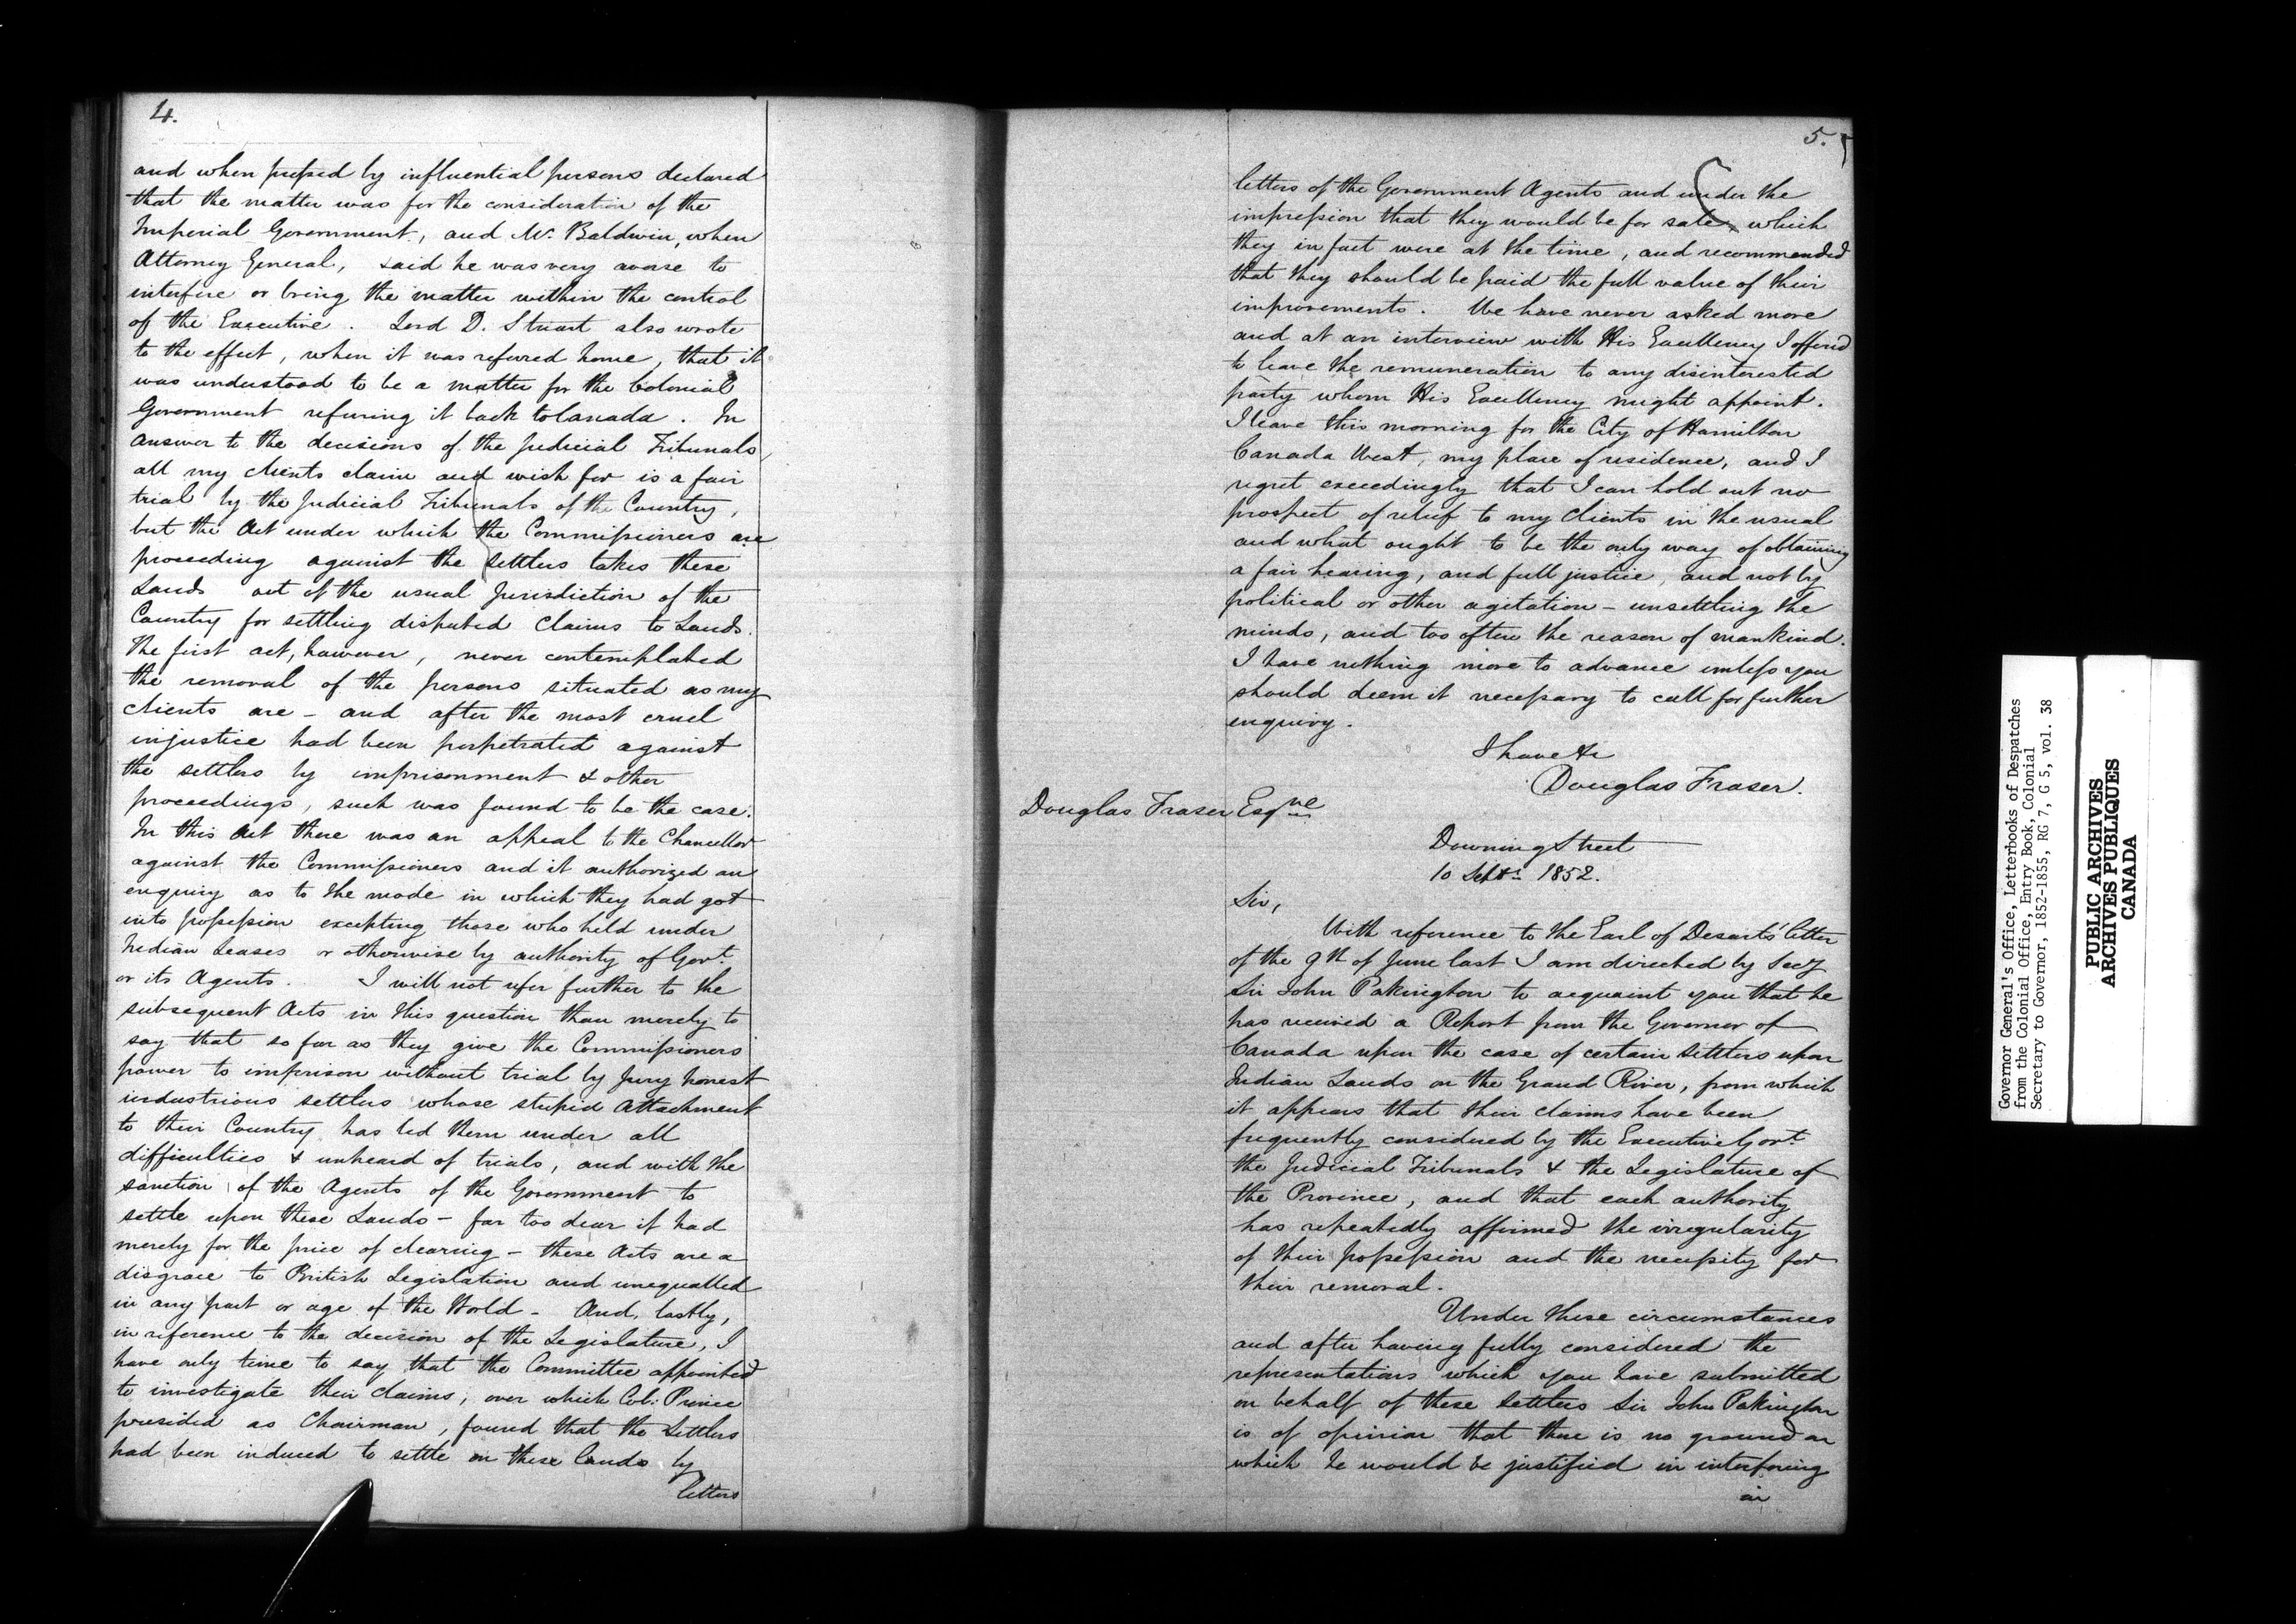 4.
and when pressed by influential persons declared
that the matter was for the consideration of the
Imperial Government, and Mr. Baldwin, when
Attorney General, said he was very averse to
interfere or bring the matter within the control
of the Executive. Lord D. Stuart also wrote
to the effect, when it was referred home, that it
was understood to be a matter for the Colonial
Government refering it back to Canada. In
answer to the decisions of the Judicial Tribunals,
all my clients claim and wish for is a fair
trial by the Judicial Tribunals of the Country,
but the Act under which the Commissioners are
proceeding against the settlers takes these
Lands out of the usual Jurisdiction of the
Country for settling disputed claims to Lands.
The first act, however, never contemplated
the removal of the persons situated as my
clients are - and after the most cruel
injustice had been perpetrated against
the settlers by imprisonment & other
proceedings, such was found to be the case.
In this Act there was an appeal to the Chancellor
against the Commissioners and it authorized an
enquiry as to the mode in which they had got
into possession excepting those who held under
Indian Leases or otherwise by authority of Govt.
or its Agents. I will not refer further to the
subsequent Acts in this question than merely to
say that so far as they give the Commissioners
power to imprison without trial by Jury honest
industrious settlers whose stupid attachment
to their Country has led them under all
difficulties & unheard of trials, and with the
sanction of the Agents of the Government to
settle upon these Lands - far too dear if had
merely for the price of clearing - these Acts are a
disgrace to British Legislation and unequalled
in any part or age of the World - And, lastly,
in reference to the decision of the Legislature, I
have only time to say that the Committee appointed
to investigate their claims, over which Col: Prince
presided as Chairman, found that the Settlers
had been induced to settle on these Lands by
letters
5.
letters of the Government Agents and under the
impression that they would be for sale, which
they in fact were at the time, and recommended
that they should be paid the full value of their
improvements. We have never asked more
and at an interview with His Excellency I offered
to leave the remuneration to any disinterested
party whom His Excellency might appoint.
I leave this morning for the City of Hamilton
Canada West, my place of residence, and I
regret exceedingly that I can hold out no
prospect of relief to my Clients in the usual
and what ought to be the only way of obtaining
a fair hearing, and full justice, and not by
political or other agitation - unsettling the
minds, and too often the reason of mankind.
I have nothing more to advance unless you
should deem it necessary to call for further
enquiry.
I have &c
Douglas Fraser.
Douglas Fraser Esqre
Downing Street
10 Septr. 1852.
Sir,
With reference to the Earl of Desart's letter
of the 9th of June last I am directed by Secy
Sir John Pakington to acquaint you that he
has received a Report from the Governor of
Canada upon the case of certain Settlers upon
Indian Lands on the Grand River, from which
it appears that their claims have been
frequently considered by the Executive Govt.
the Judicial Tribunals & the Legislature of
the Province, and that each authority
has repeatedly affirmed the irregularity
of their possession and the necessity for
their removal.
Under these circumstances
and after having fully considered the
representations which you have submitted
on behalf of these Settlers Sir John Pakington
is of opinion that there is no ground on
which he would be justified in interfering
in
Governor General's Office, Letterbooks of Despatches
from the Colonial Office, Entry Book, Colonial
Secretary to Governor, 1852-1855, RG 7, G 5, vol. 38
PUBLIC ARCHIVES
ARCHIVES PUBLIQUES
CANADA